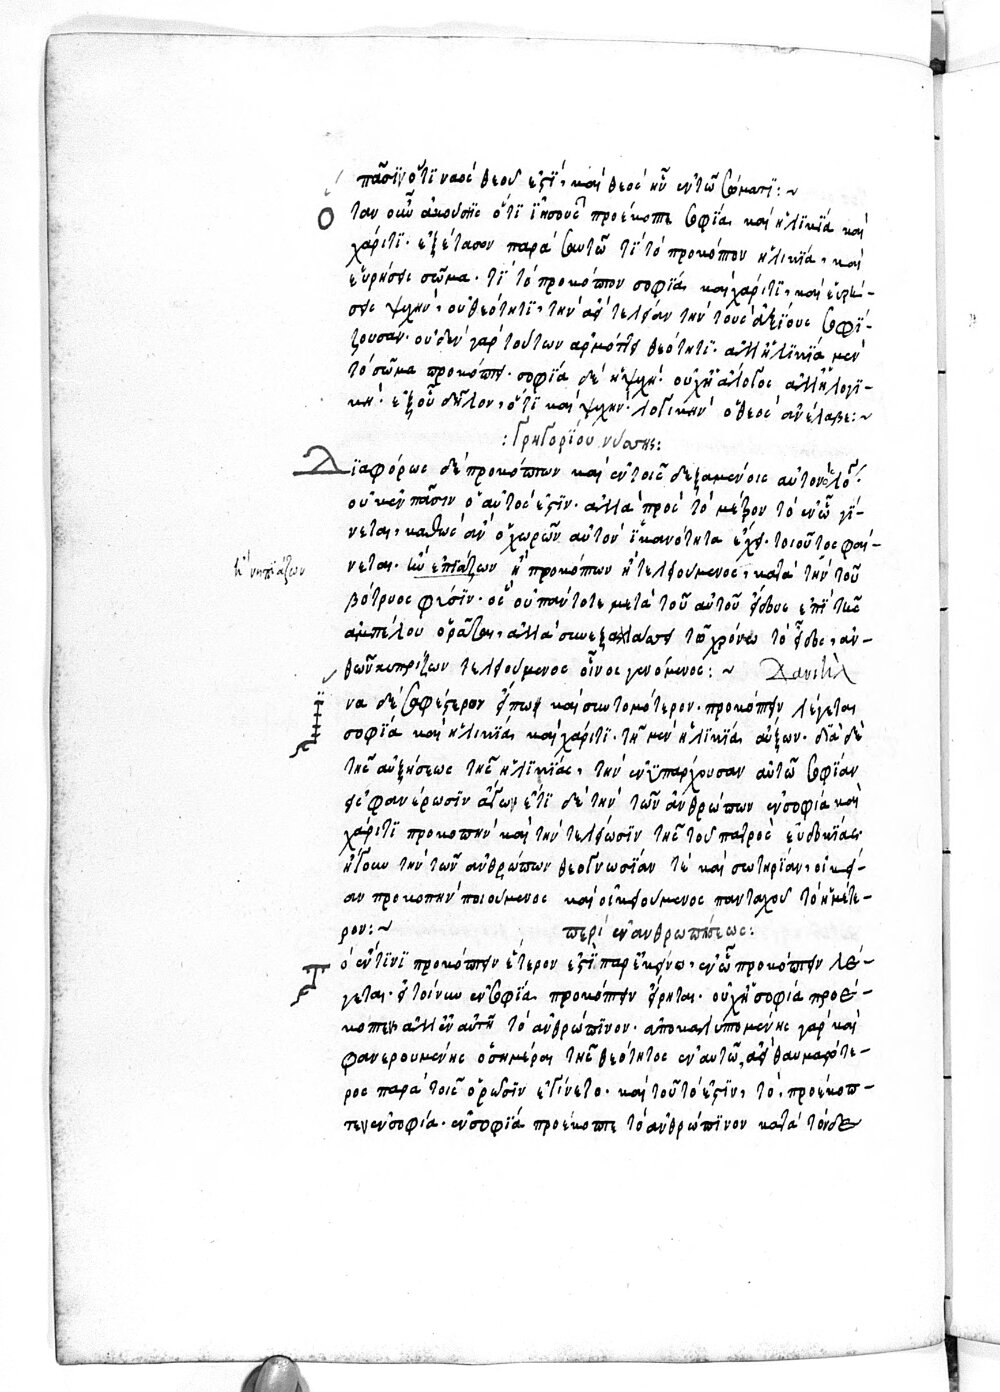 πᾶσιν ὅτι ναὸς θεοῦ ἐστὶ, καὶ θεὸς ἦν ἐν τῶ σώματι:~
Ὅταν οὖν ἀκούσης ὅτι ἰησοῦς προέκοπτε σοφία καὶ ἡλικία καὶ
χάριτι· ἐξέτασον παρὰ σαυτῶ τί τὸ προκόπτον ἡλικία, καὶ
εὑρήσεις σῶμα· τί τὸ προκόπτον σοφία καὶ χάριτι, καὶ εὑρή-
σεις ψυχήν, οὐ θεότητι, τὴν ἀεὶ τελείαν τὴν τοὺς ἀξίους σοφί-
ζουσαν· οὐδὲν γὰρ τούτων ἁρμόττει θεότητι· ἀλλ' ἡλικία μὲν
τὸ σῶμα προκόπτει· σοφία δὲ ἡ ψυχή· οὐχ ἡ ἄλογος ἀλλ' ἡ λογι-
κή· ἐξ οὗ δῆλον, ὅτι καὶ ψυχὴν λογικὴν ὁ θεὸς ἀνέλαβε:~
:Γρηγορίου νύσσης:
Διαφόρως δὲ προκόπτων καὶ ἐν τοῖς δεξαμένοις αὐτὸν
οὐκ ἐν πᾶσιν ὁ αὐτός ἐστιν· ἀλλὰ πρὸς τὸ μέτρον τὸ ἐν ὧ γί-
νεται, καθὼς ἂν ὁ χωρῶν αὐτὸν ἱκανότητα ἔχει· τοιοῦτος φαί-
νεται· ὡς ἐπιάζων ἢ προκόπτων ἢ τελειούμενος, κατὰ τὴν τοῦ
ἢ νηπιάζων
βότρυος φύσιν· ὃς οὐ πάντοτε μετὰ τοῦ αὐτοῦ εἴδους ἐπὶ τῆς
ἀμπέλου ὁρᾶται, ἀλλὰ συνεξαλλάσσει τῶ χρόνω τὸ εἶδος, ἀν-
θῶν κυπρίζων τελειούμενος οἶνος γενόμενος:~
Ἵνα δὲ σαφέστερον εἴπω καὶ συντομότερον· προκόπτειν λέγεται
σοφία καὶ ἡλικία καὶ χάριτι· τῆ μὲν ἡλικία αὔξων· διὰ δὲ
τῆς αὐξήσεως τῆς ἡλικίας, τὴν ἐνυπάρχουσαν αὐτῶ σοφίαν
εἰς φανέρωσιν ἄγων, ἔτι δὲ τὴν τῶν ἀνθρώπων ἐν σοφία καὶ
χάριτι προκοπὴν καὶ τὴν τελείωσιν τῆς τοῦ πατρὸς εὐδοκίας·
ἤγουν τὴν τῶν ἀνθρώπων θεογνωσίαν τὲ καὶ σωτηρίαν, οἰκεί-
αν προκοπὴν ποιούμενος καὶ οἰκειούμενος πανταχοῦ τὸ ἡμέτε-
ρον:~ περὶ ἐνανθρωπήσεως:
Τὸ ἔν τινι προκόπτειν ἕτερον ἐστὶ παρ' ἐκεῖνο, ἐν ὧ προκόπτειν λέ-
γεται· εἰ τοίνυν ἐν σοφία προκόπτειν εἴρηται· οὐχ ἡ σοφία προέ-
κοπτεν ἀλλ' ἐν αὐτῆ τὸ ἀνθρώπινον· ἀποκαλυπτομένης γὰρ καὶ
φανερουμένης ὁσημέραι τῆς θεότητος ἐν αὐτῶ, ἀεὶ θαυμαστότε-
ρος παρὰ τοῖς ὁρῶσιν ἐγίνετο· καὶ τοῦτό ἐστιν, τὸ, προέκοπ-
τεν ἐν σοφία· ἐν σοφία προέκοπτε τὸ ἀνθρώπινον κατὰ τόνδε